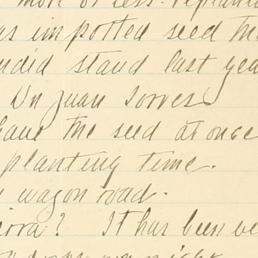 more or less.
as imported seed the
ndid stand last yea
Dr Juan Torres
have the seed at once
planting time.
wagon road.
rra? It has been be